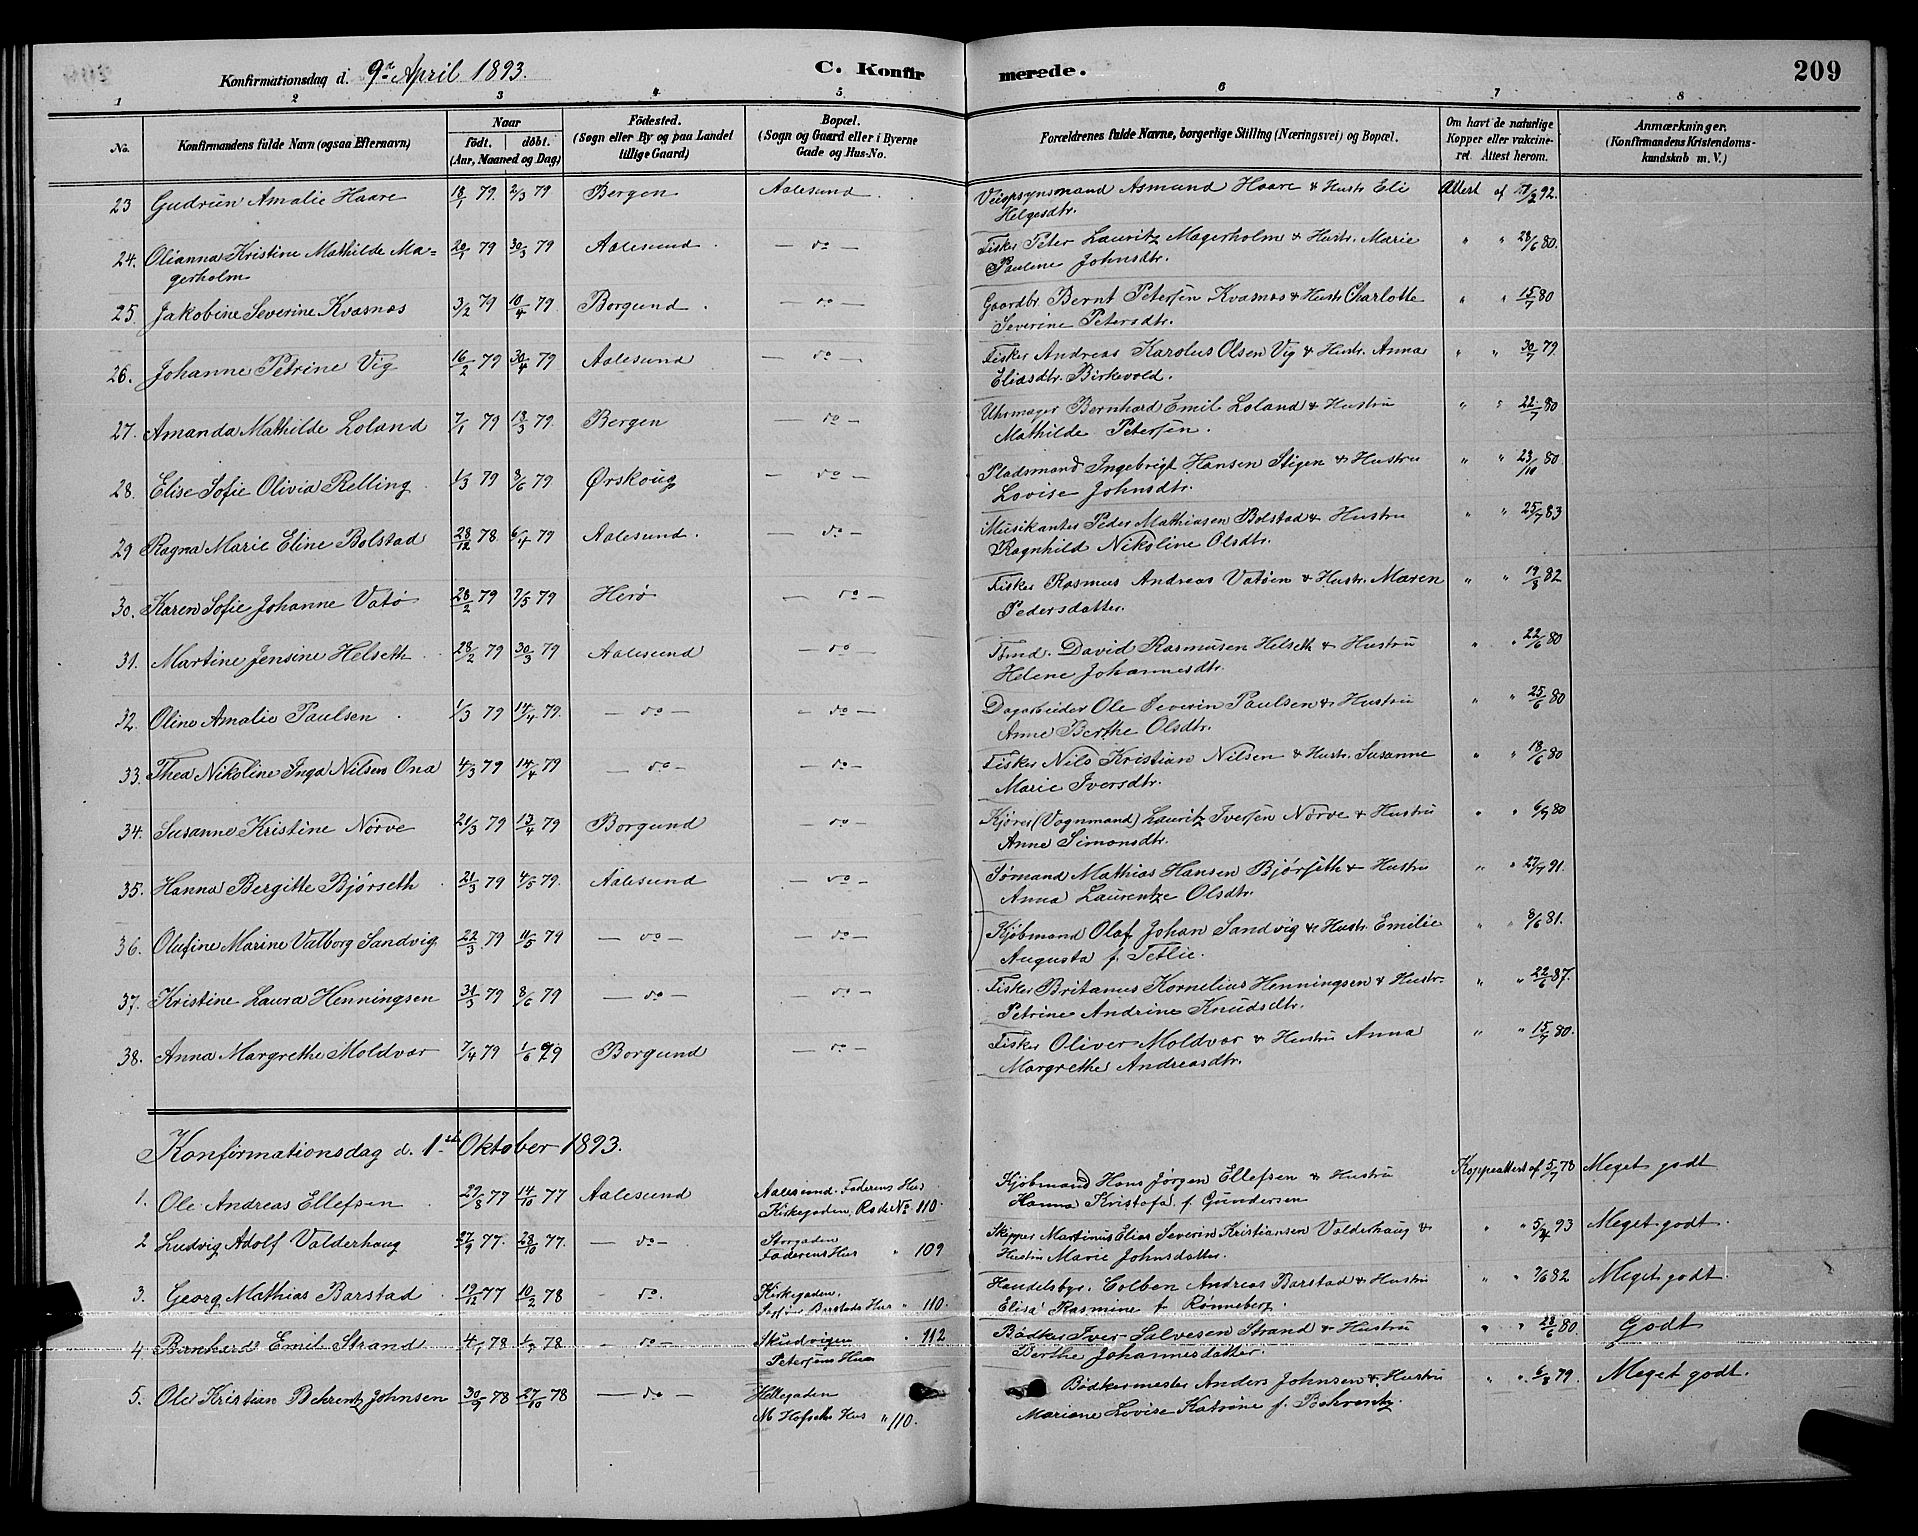 209
Konfirmationsdag d. 9de April 1893. C. Konfirmerede.
1 2 3 4 5 6 7 8
No. Konfirmandens fulde Navn (ogsaa Efternavn) Naar födt. döbt. (Aar, Maaned og Dag) Födested. (Sogn eller By og paa Landet tillige Gaard) Bopæl. (Sogn og Gaard eller i Byerne Gade og Hus-No. Forældrenes fulde Navne, borgerlige Stilling (Næringsvei) og Bopæl. Om havt de naturlige Kopper eller vakcineret. Attest herom. Anmærkninger. (Konfirmandens Kristendomskundskab m. V.)
23 Gudrun Amalie Haare 18/1 79. 2/3 79 Bergen Aalesund. Veiopsynsmand Asmund Haare & Hustr. Eli Attest af 17/2 92.
Helgesdtr.
24. Olianna Kristine Mathilde Ma= 20/1 79 30/3 79 Aalesund. — do — Fisker Peter Lauritz Magerholm & Hustr. Marie " " 28/6 80.
gerholm Pauline Johnsdtr.
25. Jakobine Severine Kvasnes 3/2 79 10/4 79 Borgund. — do — Gaardbr. Bernt Petersen Kvasnes & Hustr. Charlotte " " 15/7 80
Severine Petersdtr.
26. Johanne Petrine Vig 16/2 79 30/4 79 Aalesund — do — Fisker Andreas Karolus Olsen Vig & Hustr. Anna " " 30/7 79.
Eliasdtr. Birkevold.
27. Amanda Mathilde Loland 7/1 79 13/3 79. Bergen — do — Uhrmager Bernhard Emil Loland & Hustru " " 22/7 80
Mathilde Petersen.
28. Elise Sofie Olivia Relling 1/3 79 8/6 79 Ørskoug — do — Pladsmand Ingebrigt Hansen Stigen & Hustru " " 23/10 80.
Lovise Johnsdtr.
29 Ragna Marie Eline Bolstad 28/12 78 6/4 79 Aalesund. — do — Musikantes Peder Mathiasen Bolstad & Hustru " " 25/7 83
Ragnhild Nikoline Olsdtr.
30. Karen Sofie Johanne Vatö 28/2 79 2/5 79 Herö — do — Fisker Rasmus Andreas Vatöen & Hustr. Maren " " 19/8 82
Pedersdatter.
31. Martine Jensine Helseth 28/2 79 30/3 79 Aalesund — do — David Rasmusen Helseth & Hustru " " 22/6 80
Helene Johannesdtr.
32. Oline Amalie Paulsen. 1/3 79 14/4 79. — do — — do — Dagarbeider Ole Severin Paulsen & Hustru " " 25/6 80
Anne Berthe Olsdtr.
33. Thea Nikoline Inga Nilsen Ona 4/3 79 14/4 79 — do — — do — Fisker Nils Kristian Nilsen & Hustr. Susanne " " 18/6 80
Marie Iversdtr.
34. Susanne Kristine Nörve 21/3 79 13/4 79 Borgund — do — Kjörer (Vognmand) Lauritz Iversen Nörve & Hustru " " 6/9 80
Anne Simonsdtr.
35. Hanna Bergitte Bjørseth 21/3 79 4/5 79. Aalesund — do — Sømand Mathias Hansen Bjørseth & Hustru " " 27/7 91.
Anna Laurentze Olsdtr.
36. Olufine Marine Valborg Sandvig 22/3 79 11/5 79 — do — — do — Kjøbmand Olaf Johan Sandvig & Hustr. Emilie " " 8/6 81.
Augusta f. Tetlie.
37. Kristine Laura Henningsen 31/3 79 8/6 79 — do — — do — Fisker Britanus Kornelius Henningsen & Hustr. " " 22/6 87.
Petrine Andrine Knudsdtr.
38. Anna Margrethe Moldvær 7/4 79 1/6 79 Borgund — do — Fisker Oliver Moldvær & Hustru Anna " " 15/7 80.
Margrethe Andreasdtr.
Konfirmationsdag d. 1ste Oktober 1893.
1. Ole Andreas Ellefsen 29/8 77 14/10 77 Aalesund Aalesund. Faderens Hus Kjøbmand Hans Jørgen Ellefsen & Hustru Koppeattest af 5/7 78 Meget godt
Kirkegaden, Rode No 110. Hanna Kristofa f. Gundersen
2 Ludvig Adolf Valderhaug 27/9 77. 28/10 77. — do — Storgaden Skipper Martinus Elias Severin Kristiansen Valderhaug & " " 5/4 93 Meget godt.
Faderens Hus " 109 Hustru Marie Johnsdatter.
3. Georg Mathias Barstad 19/12 77 10/2 78 — do. Kirkegaden. Handelsbgr. Colben Andreas Barstad & Hustru " " 9/6 82 Meget godt.
Barstads Hus " 110. Elisa Rasmine f. Rønneberg.
4. Bernhard Emil Strand 4/1 78 78 — do — Skudvigen " 112 Bødker Iver Salvesen Strand & Hustru " " 28/6 80. Godt
Petersens Hus Berthe Johannesdatter.
5. Ole Kristian Behrentz Johnsen 30/9 78 27/10 78 — do — Hellegaden Bødkermester Anders Johnsen & Hustru " " 6/8 79. Meget godt.
M Hofseths Hus " 110. Mariane Lovise Katrine f. Behrentz.